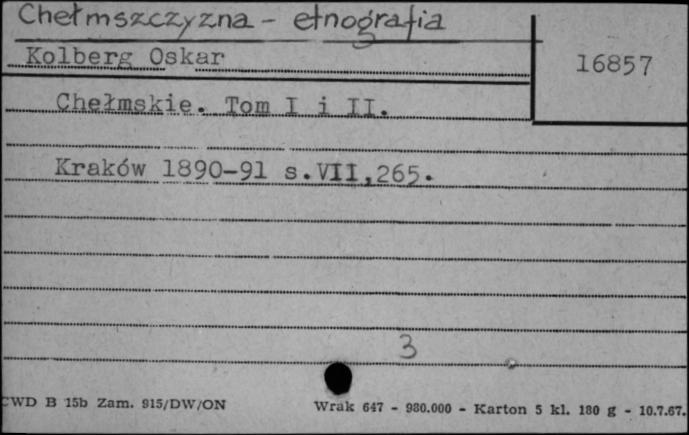 Chełmszczyzna - etnografia
Kolberg Oskar
16857
Chełmskie. Tom I i II.
Kraków 1890-91 s.VII,265.
3
CWD B 15b Zam. 915/DW/ON
Wrak 647 - 980.000 - Karton 5 kl. 180 g - 10.7.67.